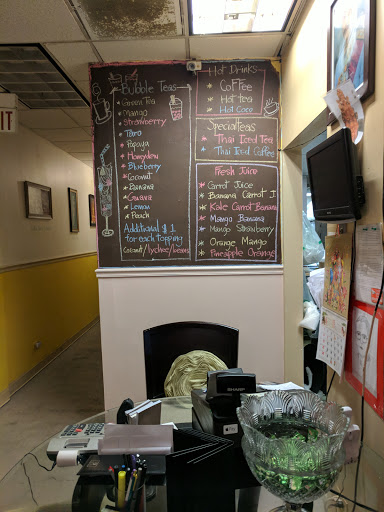 Bubble Teas
Green Tea
Mango
Strawberry
Taro
Papaya
Honeydew
Blueberry
Coconut
Banana
Guava
Lemon
Peach
Additional $1
for each topping
Coconut/lychee/beans
Hot Drinks
Coffee
Hot tea
Hot Coco
Specialteas
Thai Iced Tea
Thai Iced Coffee
Fresh Juice
Carrot Juice
Banana Carrot J
Kale Carrot Banana
Mango Banana
Mango Strawberry
Orange Mango
Pineapple Orange
IT
SHARP